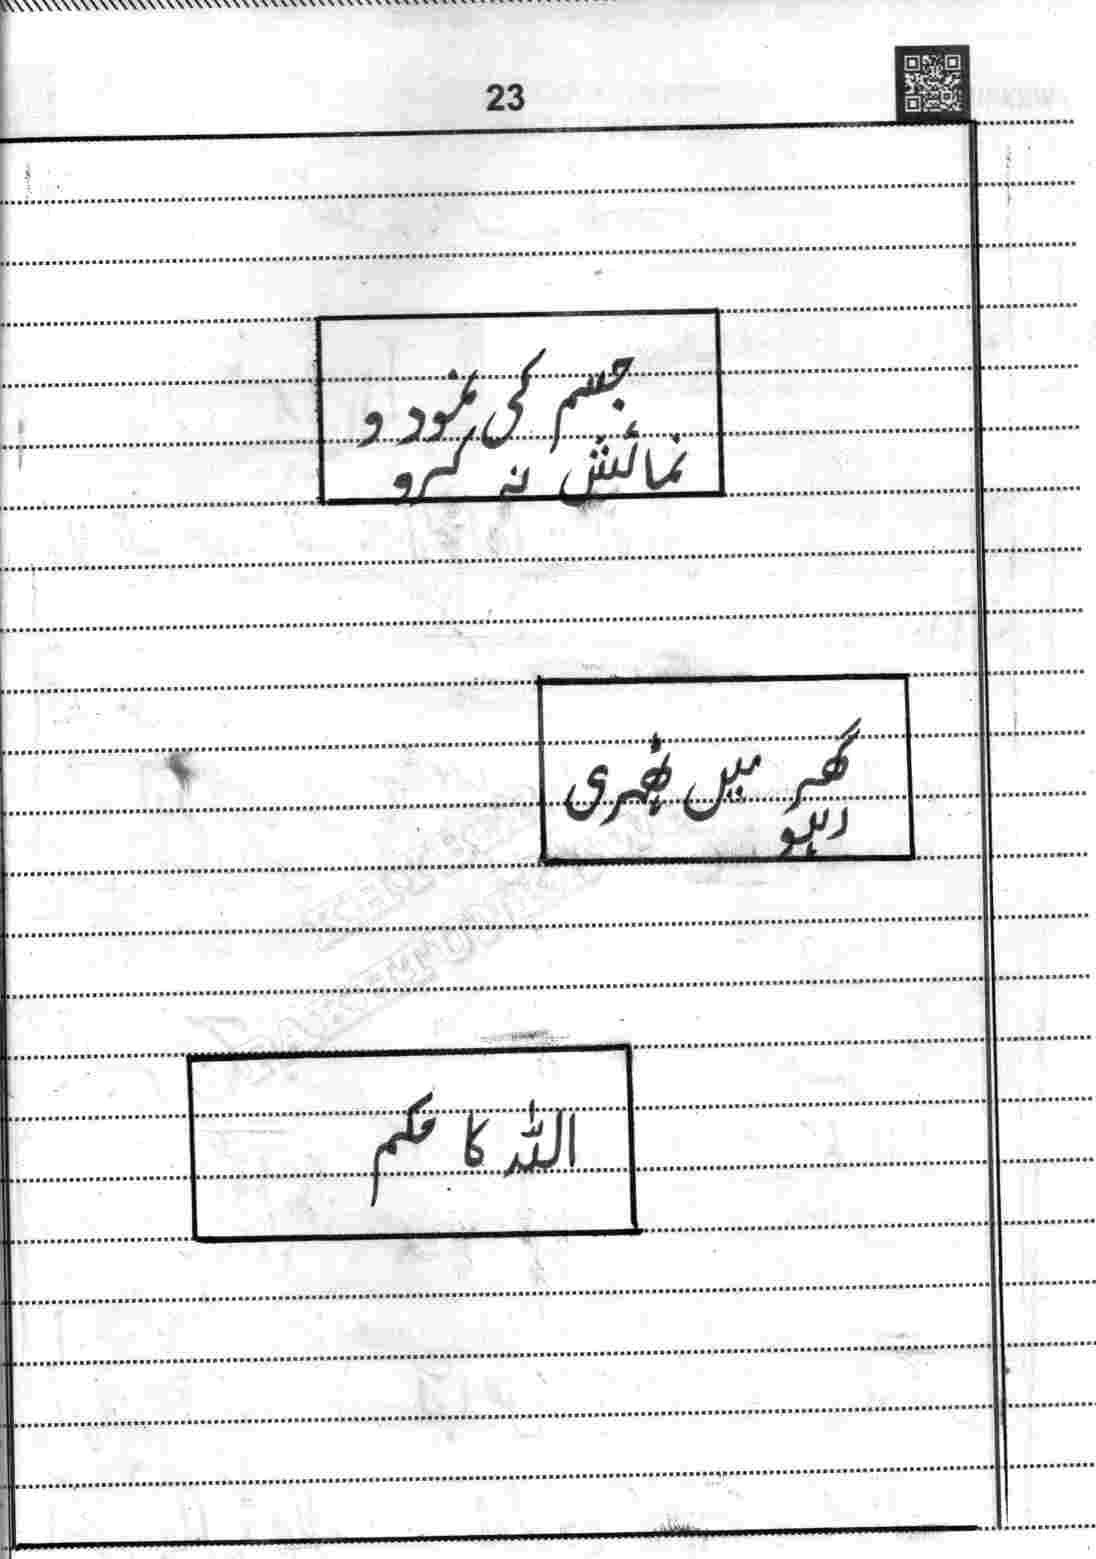 23
جسم کی نمود و
نمائش نہ کرو
گھر میں ٹھہری
رہو
اللہ کا حکم